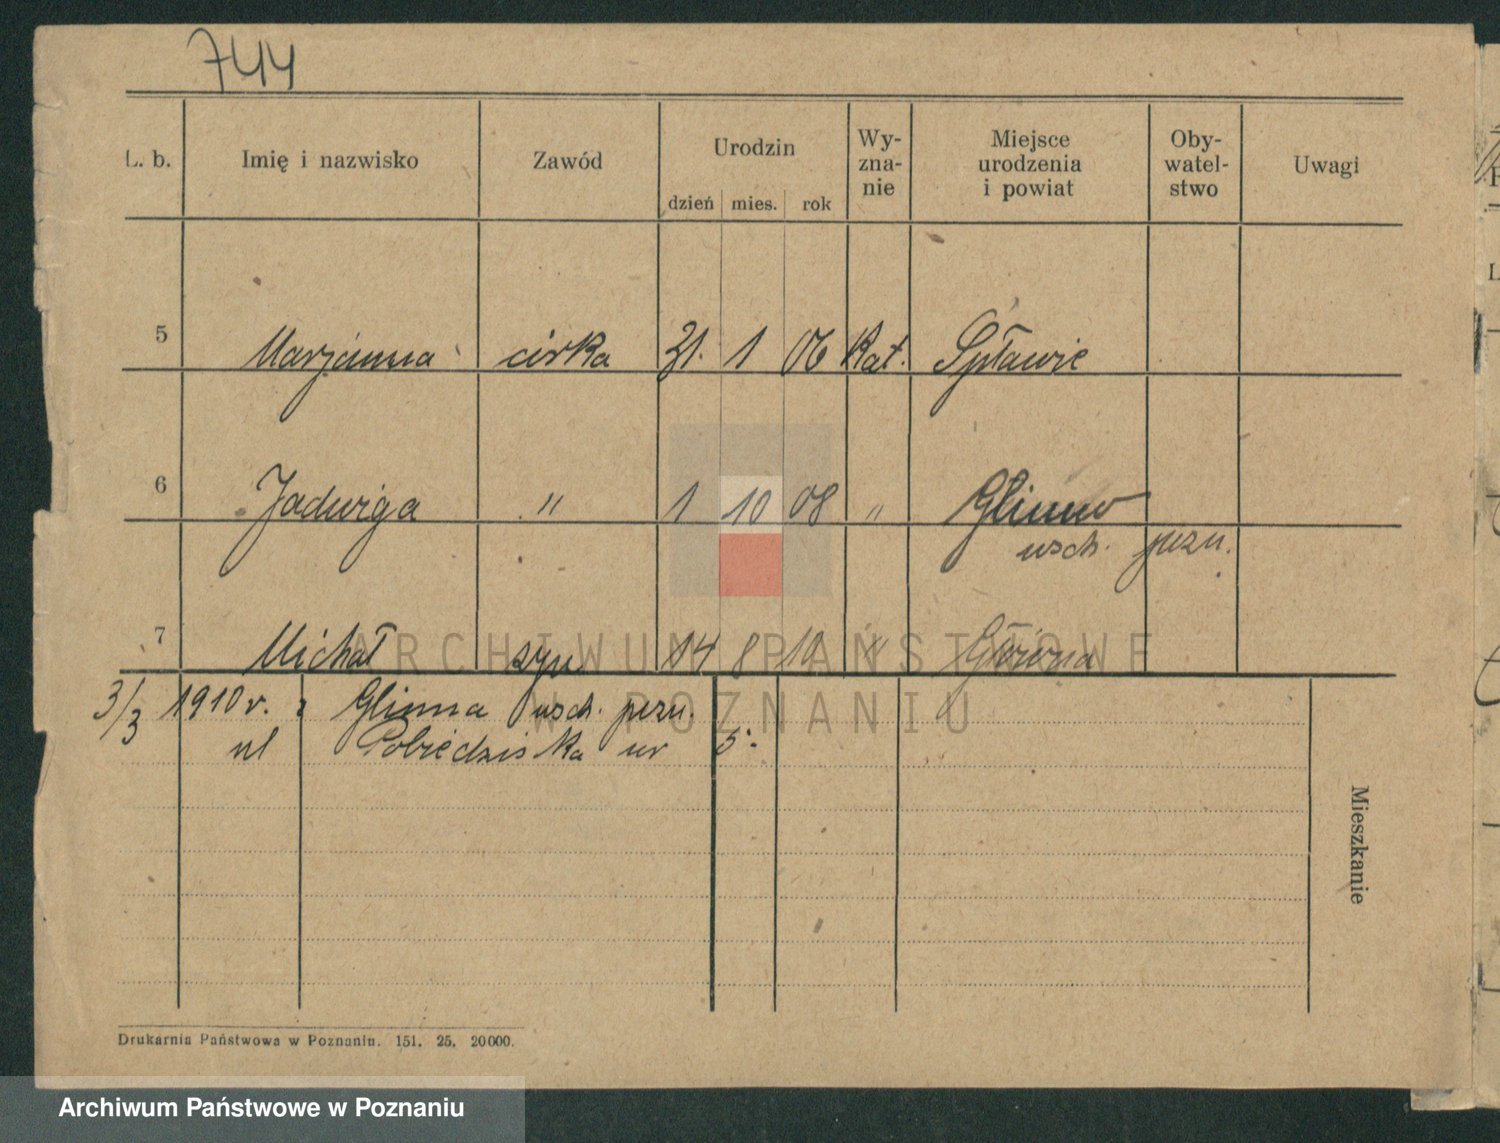 744
L. b. Imię i nazwisko Zawód Urodzin dzień mies. rok Wy-zna-nie Miejsce urodzenia i powiat Oby-watel-stwo Uwagi
5 Marjanna córka 31. 1 06 Kat. Spławie
6 Jadwiga " 1 10 08 " Glinno
wsch. pozn.
7 Michał syn 14 8 19 " Główna
3/3 1910 r. z Glinna wsch. pozn.
ul Pobiedziska nr 5.
Mieszkanie
ARCHIWUM PAŃSTWOWE
W POZNANIU
Drukarnia Państwowa w Poznaniu. 151. 25. 20000.
Archiwum Państwowe w Poznaniu